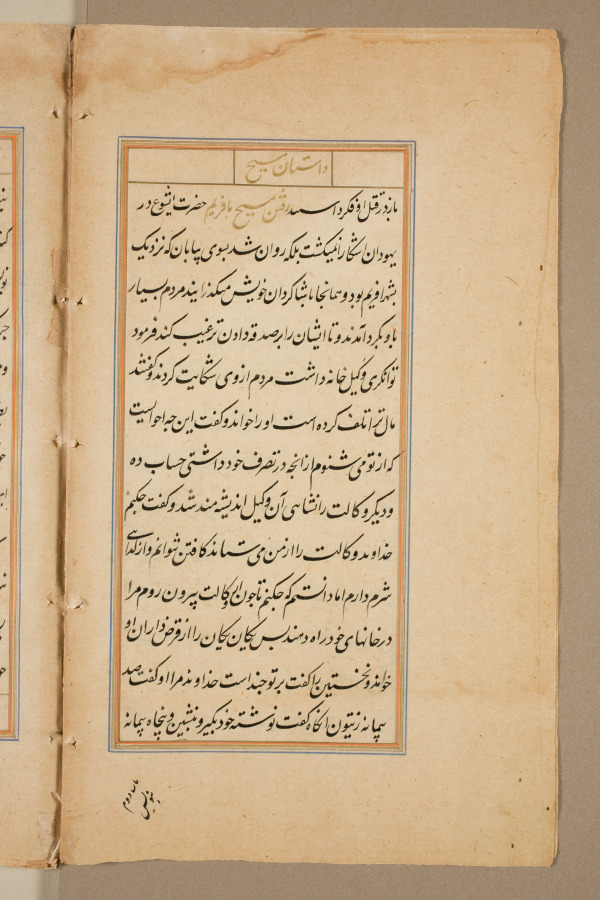 داستان مسیح
ماز در قتل او فکر داسد رفتن مسیح بافریم حضرت ایشوع در
یهودان اشکارا نمیکشت بلکه روان شد بسوی بیابان که نزدیک
بشهر افریم بود و همانجا با شاکردان خویش میکذرانید مردم بسیار
باو بکرد آمدند و تا ایشان را بر صدقه دادن ترغیب کند فرمود
توانکری وکیل خانه داشت مردم از وی شکایت کردند و کفتند
مال ترا تلف کرده است او را خواند و کفت این چه احوالیست
که از تو می شنوم از انچه در تصرف خود داشتی حساب ده
و دیکر وکالت را نشائی آن وکیل اندیشه مند شد و کفت چکنم
خداوند وکالت را از من می ستاند کافتن نتوانم و از کدائی
شرم دارم اما دانستم که چکنم تا چون از وکالت بیرون روم مرا
در خانهای خود راه دهند پس یکان یکان را از قرض داران او
خواند و نخستین را کفت بر تو چند است خداوند مرا او کفت صد
پیمانه زیتون انکاه کفت نوشته خود بکیر و بنشین و پنجاه پیمانه
بنویس
دوم